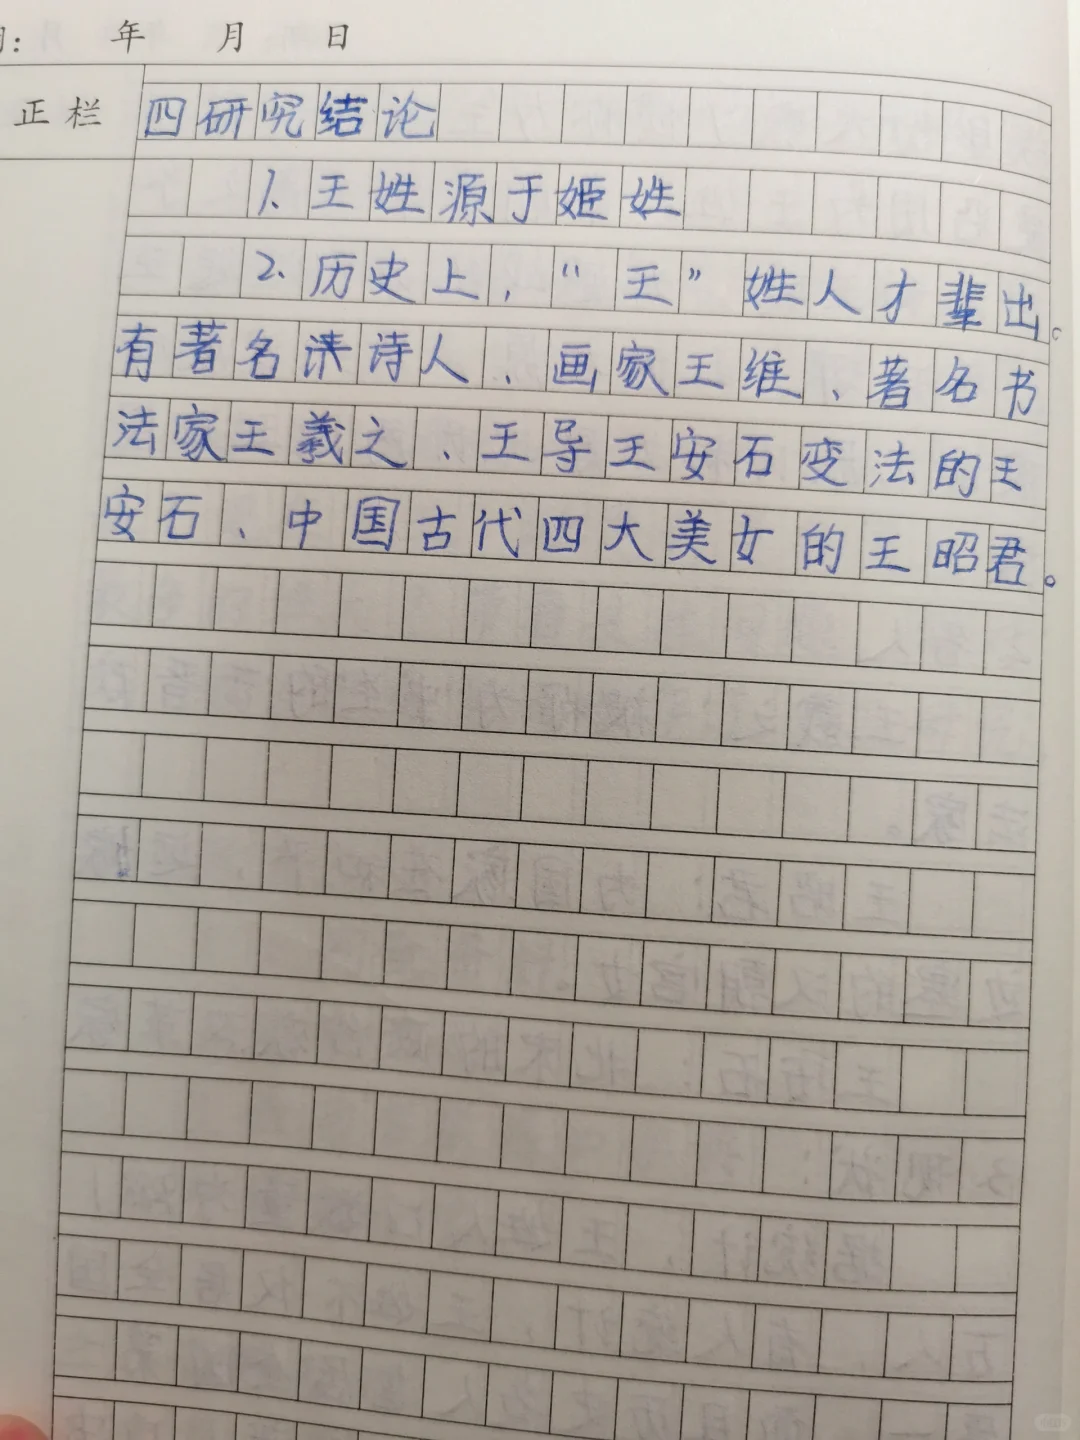 年 月 日
正栏
四研究结论
1、王姓源于姬姓
2、历史上，“王”姓人才辈出。
有著名诗人、画家王维、著名书
法家王羲之、王导王安石变法的王
安石、中国古代四大美女的王昭君。